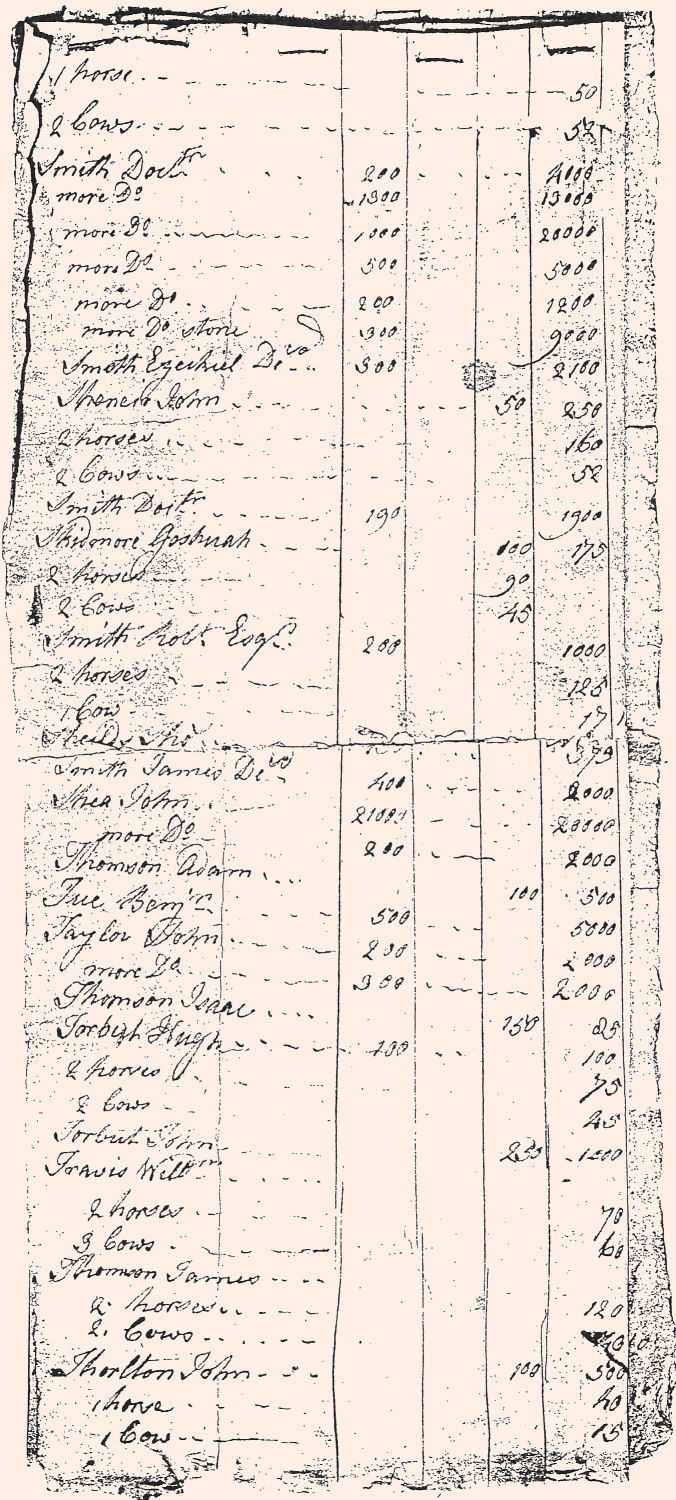 1 horse 50
2 Cows 52
Smith Doctr 200 4000
more Do 1300 13000
more Do 1000 20000
more Do 500 5000
more Do 200 1200
more Do stone 300 9000
Smith Ezekiel Decd 300 2100
John 50 250
2 horses 160
2 Cows 52
Smith Doctr 190 1900
Skidmore Joshuah 100 175
2 horses 90
2 Cows 45
Smith Robt Esqr 200 1000
2 horses 125
1 Cow 17
375
Smith James Decd 400 2000
Shea John 21000 20000
more Do 200 2000
Thomson Adam 100 500
Tue Benjn 500 5000
Taylor John 200 2000
more Do 300 2000
Thomson Isaac 150 25
Torbert Hugh 100 100
2 horses 75
2 Cows 45
Torbut John 250 1200
Travis Willm
2 horses 70
3 Cows 60
Thomson James
2 horses 120
2 Cows 40
Thorlton John 100 500
1 horse 40
1 Cow 15